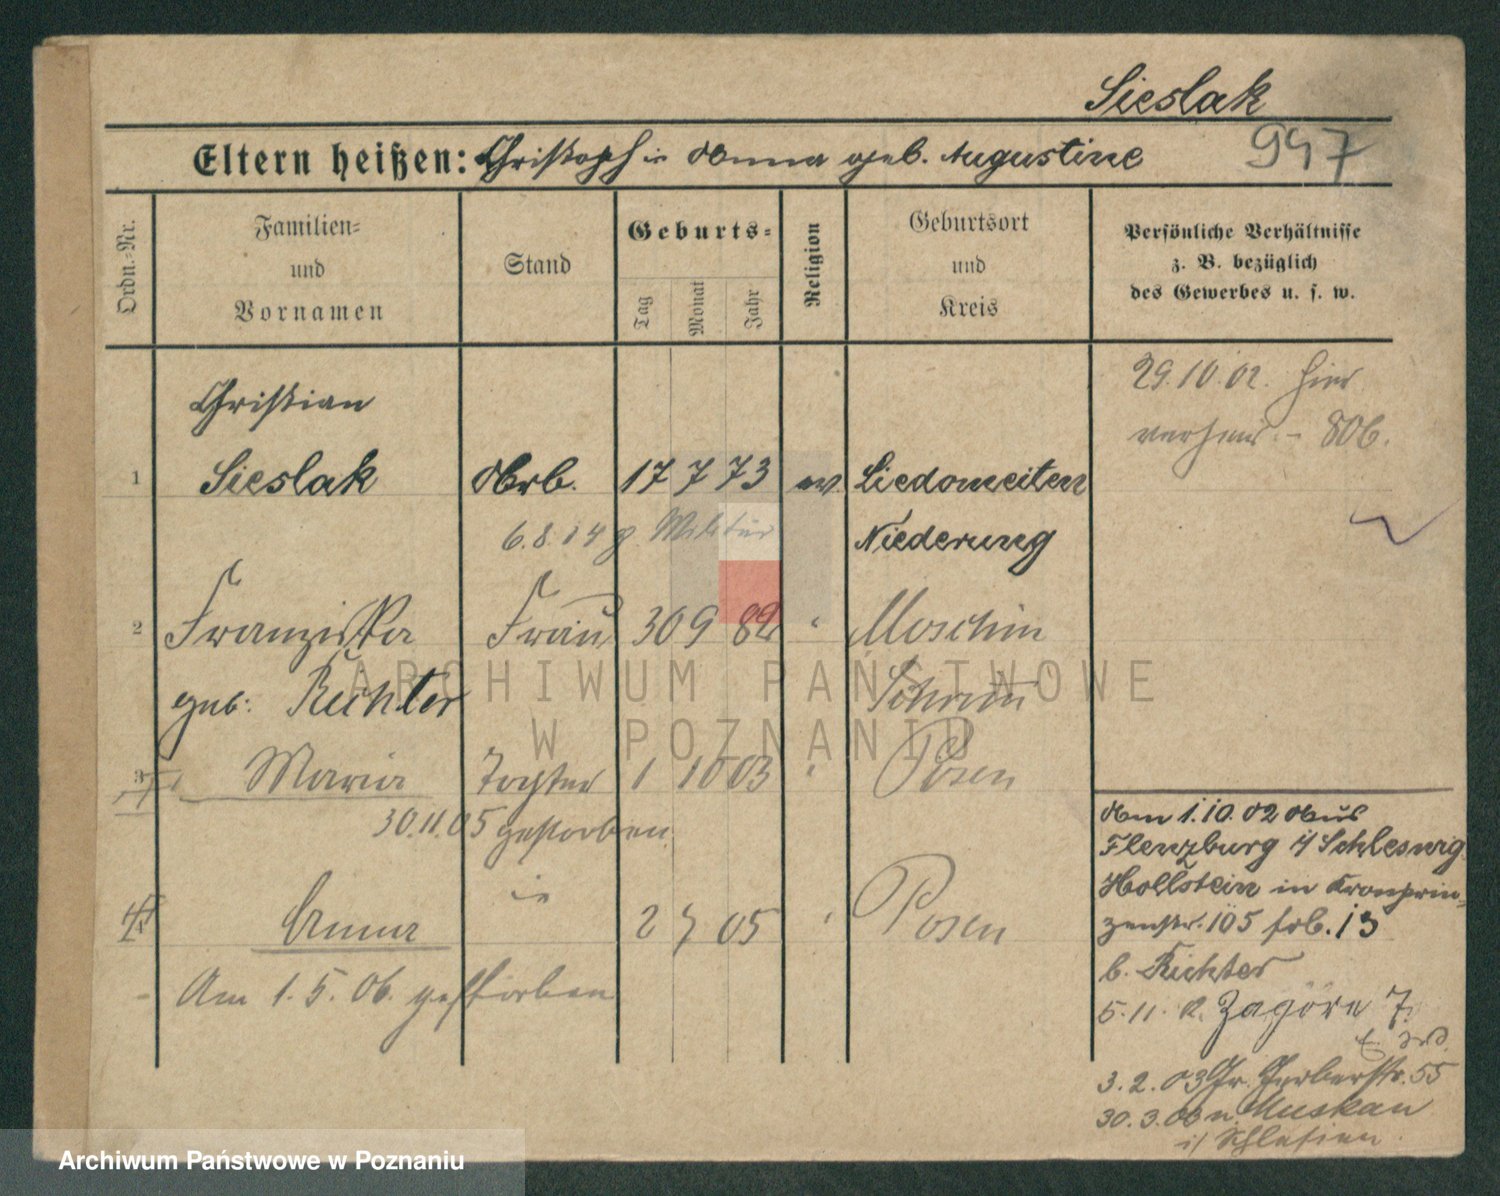 Sieslak
Eltern heißen: Christoph u. Anna geb. Augustine
947
Ordn.-Nr.
Familien- und Vornamen
Stand
Geburts-
Tag
Monat
Jahr
Religion
Geburtsort und Kreis
Persönliche Verhältnisse
z. B. bezüglich
des Gewerbes u. s. w.
29.10.02. hier
verheir. - 806.
Christian
1 Sieslak Arb. 17 7 73 ev. Liedomeiten
6.8.14 z. Militär Niederung
2 Franziska Frau 30 9 82 " Moschin
geb. Richter Schrim
3 Maria Tochter 1 10 03 " Posen
30.11.05 gestorben
4 Anna 2 7 05 " Posen
Am 1.5.06. gestorben
Am 1.10.02 Aus
Flenzburg i/ Schleswig
Hollstein in Kronprin-
zenstr. 105 frb. 13
b. Richter
5.11. 2. Zagorze 7.
3.2.03 Gr. Gerberstr. 55
30.3.06 n. Muskau
i/ Schlesien.
ARCHIWUM PAŃSTWOWE
W POZNANIU
Archiwum Państwowe w Poznaniu